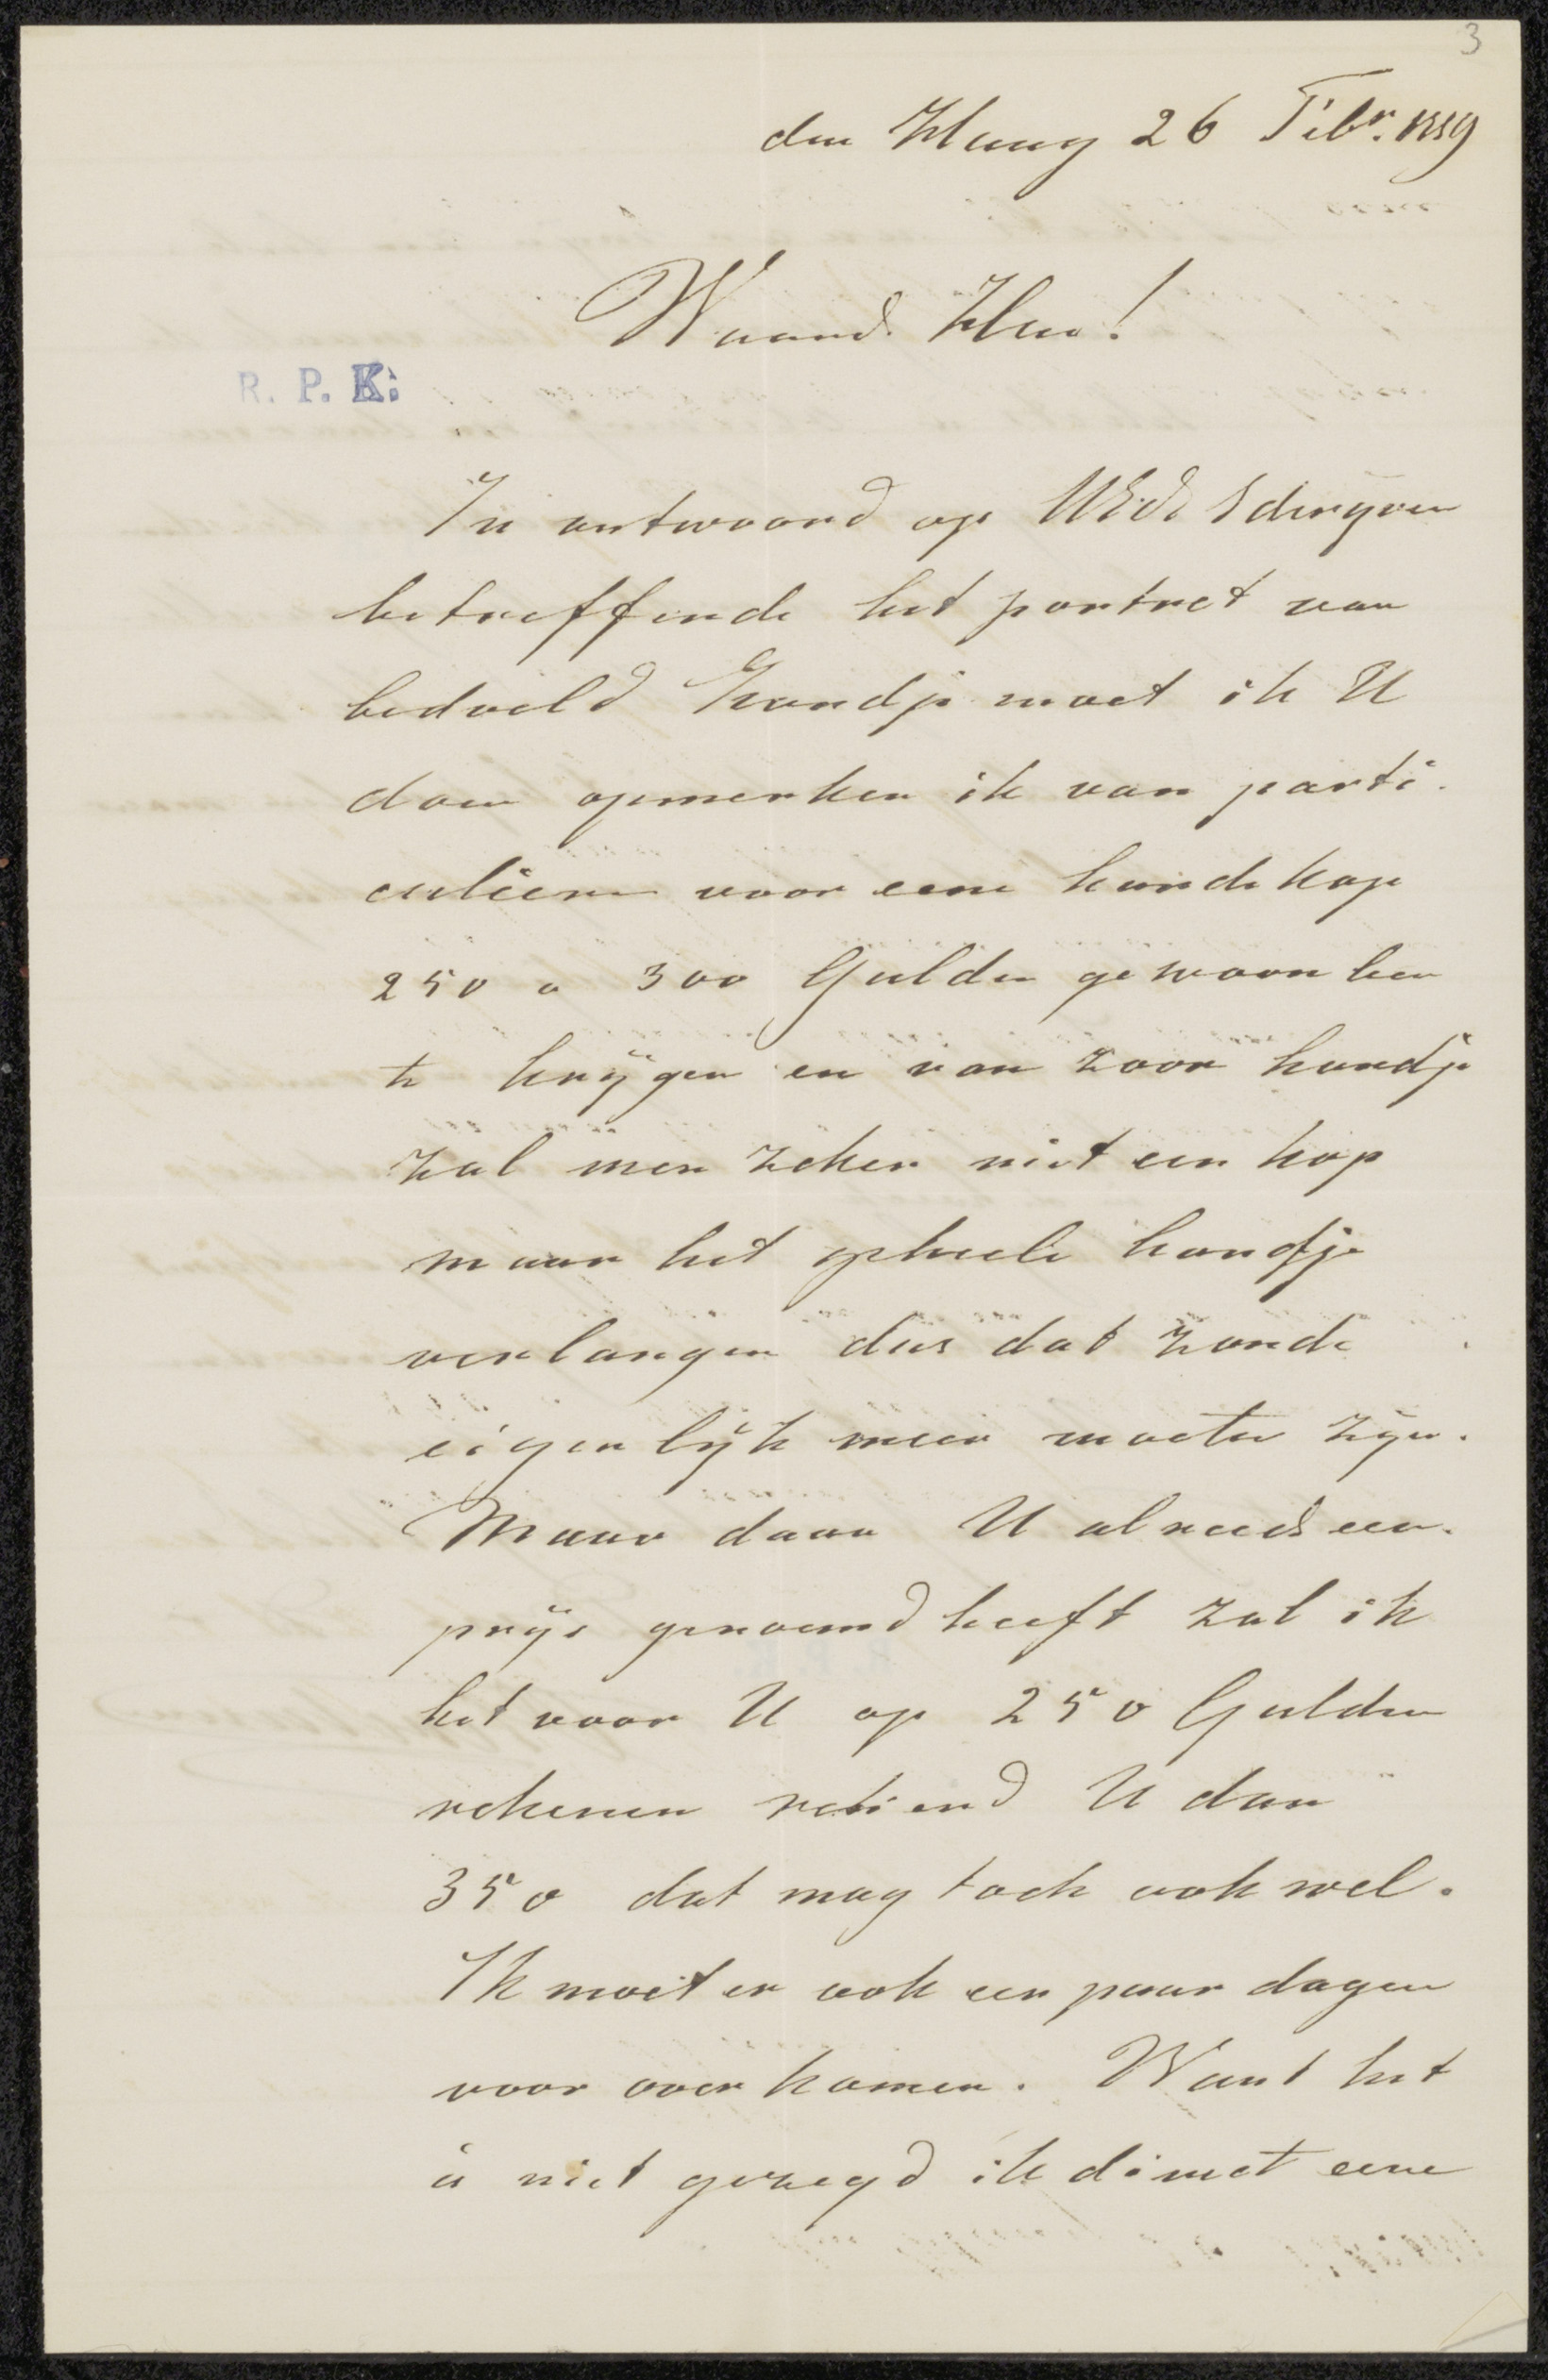 3
den Haag 26 Febr. 1889
Waarde Heer!
R. P. K.
In antwoord op UEd schrijven
betreffende het portret van
bedoeld hondje moet ik U
doen opmerken ik van parti-
culieren voor eene hondekop
250 a 300 Gulden gewoon ben
te krijgen en van zoon hondje
zal men zeker niet een kop
maar het geheele hondje
verlangen dus dat zoude
eigenlijk meer moeten zijn.
Maar daar U alreeds een
prijs genoemd heeft zal ik
het voor U op 250 Gulden
rekenen U dan
350 dat mag toch ook wel.
Ik moet er ook een paar dagen
voor over komen. Want het
is niet gezegd ik die met eene